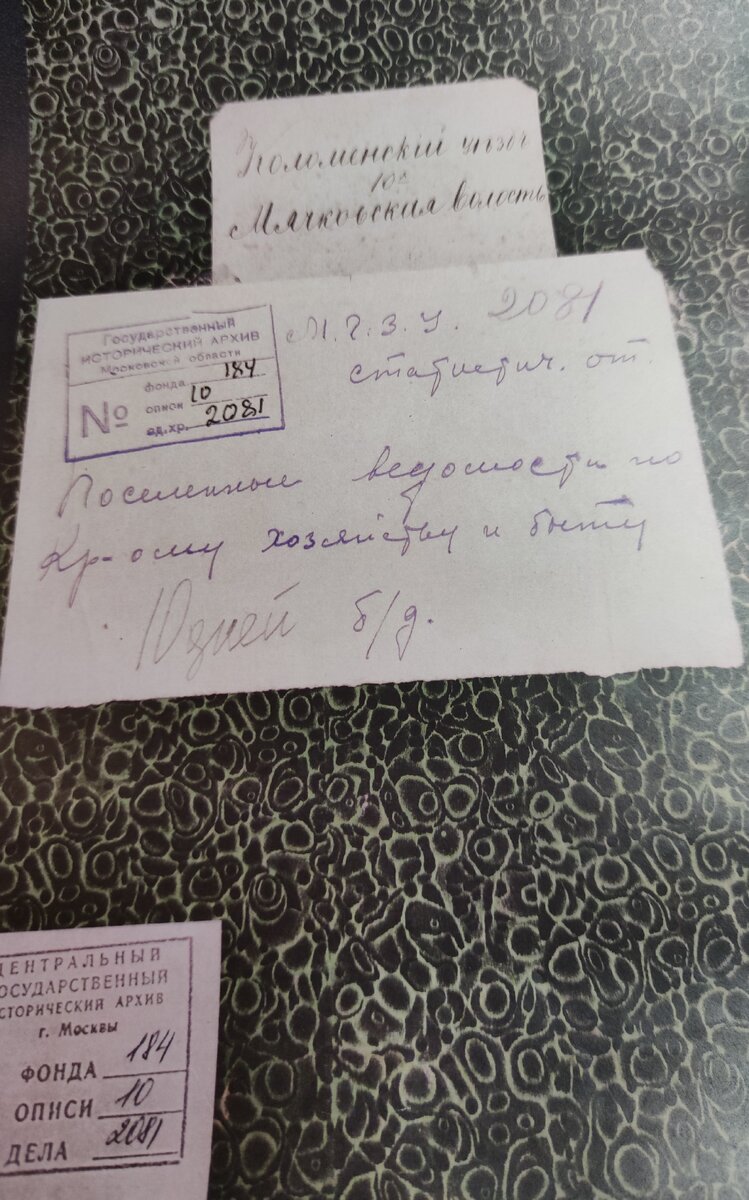 Коломенскій уѣздъ
10я
Мячковская волость
Государственный
ИСТОРИЧЕСКИЙ АРХИВ
Московской области
фонда 184
№ описи 10
ед.хр. 2081
М.Г.З.У. 2081
статистич. от.
Поселенные ведомости по
Кр-ому хозяйству и быту
б/д.
ЦЕНТРАЛЬНЫЙ
ГОСУДАРСТВЕННЫЙ
ИСТОРИЧЕСКИЙ АРХИВ
г. Москвы
ФОНДА 184
ОПИСИ 10
ДЕЛА 2081